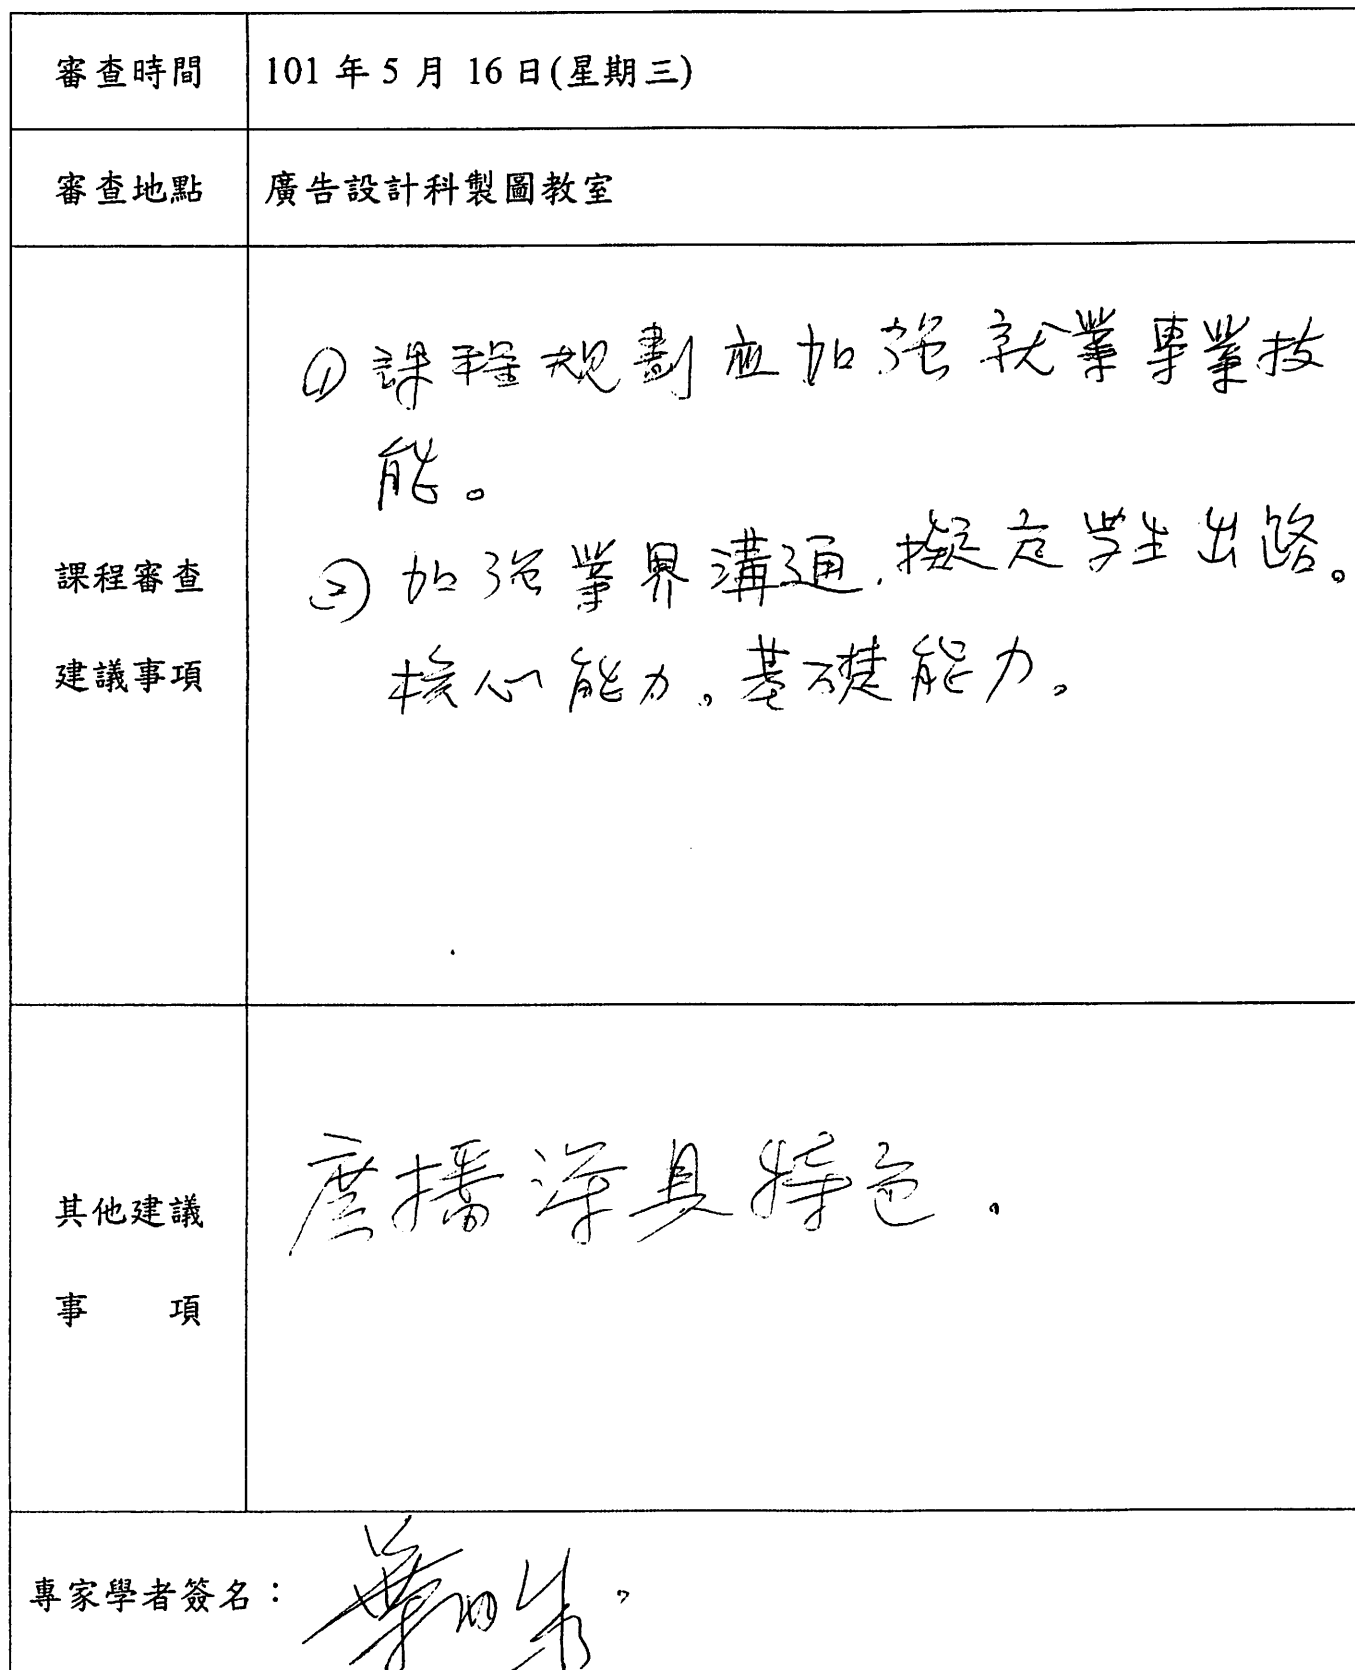 審查時間 101 年 5 月 16 日(星期三)
審查地點 廣告設計科製圖教室
課程審查
建議事項
① 課程規劃应加強就業專業技
能。
② 加強業界溝通,擬定学生出路。
核心能力。基礎能力。
其他建議
事 項
廣播深具特色.
專家學者簽名: